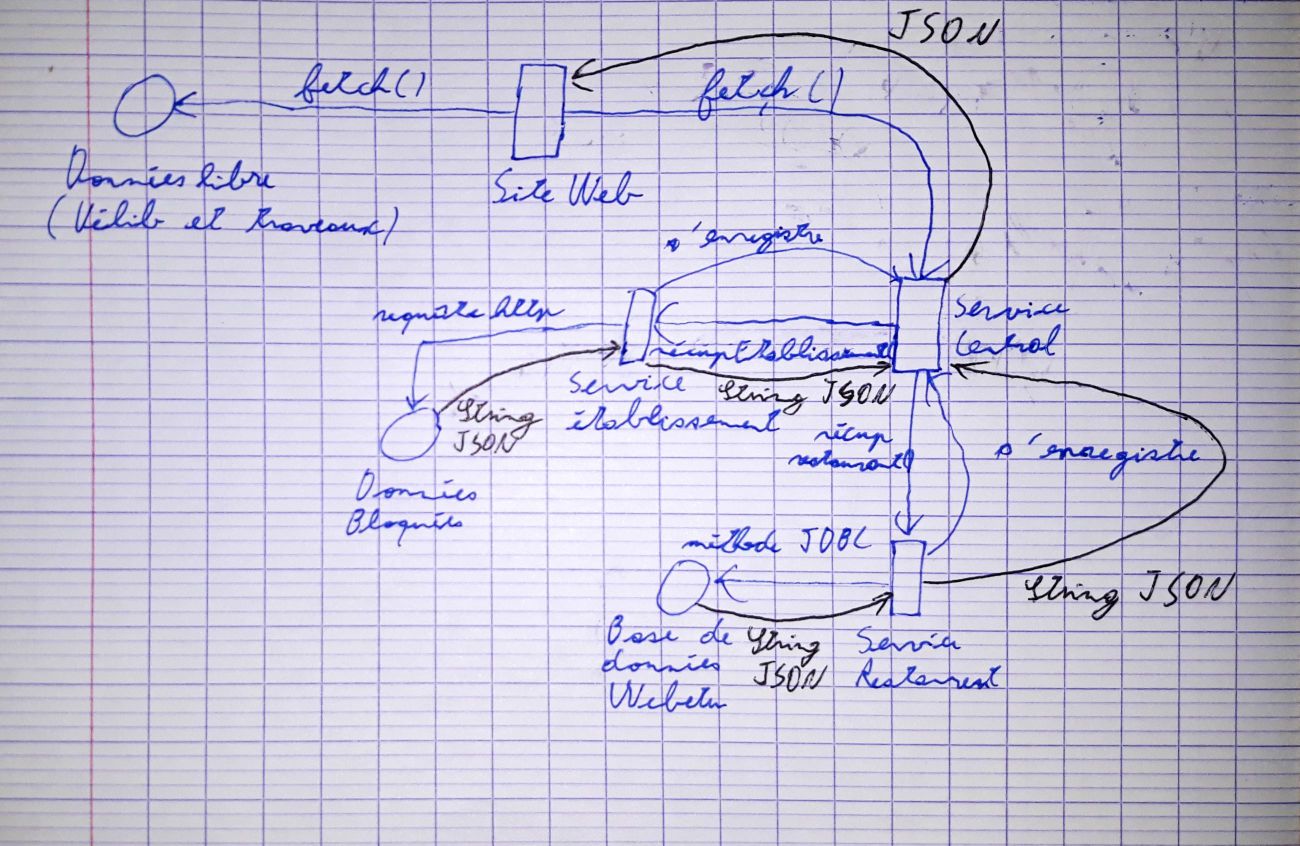 JSON
fetch()
fetch()
Données libre
(Vélib et traveaux)
Site Web
s'enregistre
requête http
Service
Central
récupEtablissement
String JSON
Service
établissement
String
JSON
récup
restaurant
s'enregistre
Données
Bloquées
méthode JDBC
String JSON
Base de
données
Webetu
String
JSON
Service
Restaurent